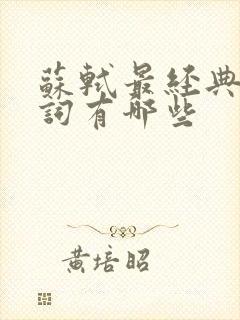 蘇軾最經典
詞有哪些
黃培昭